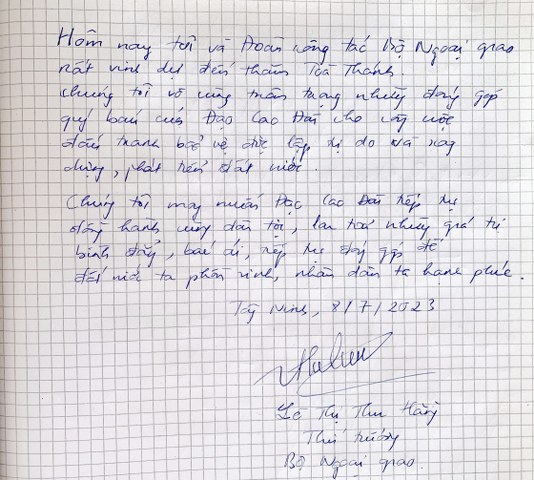 Hôm nay tôi và Đoàn công tác Bộ Ngoại giao
rất vinh dự đến thăm Tòa Thánh.
Chúng tôi vô cùng trân trọng những đóng góp
quý báu của Đạo Cao Đài cho công cuộc
đấu tranh bảo vệ độc lập tự do và xây
dựng, phát triển đất nước.
Chúng tôi mong muốn Đạo Cao Đài tiếp tục
đồng hành cùng dân tộc, lan toả những giá trị
bình đẳng, bác ái, tiếp tục đóng góp để
đất nước ta phồn vinh, nhân dân ta hạnh phúc.
Tây Ninh, 8/7/2023
Lê Thị Thu Hằng
Thứ trưởng
Bộ Ngoại giao.